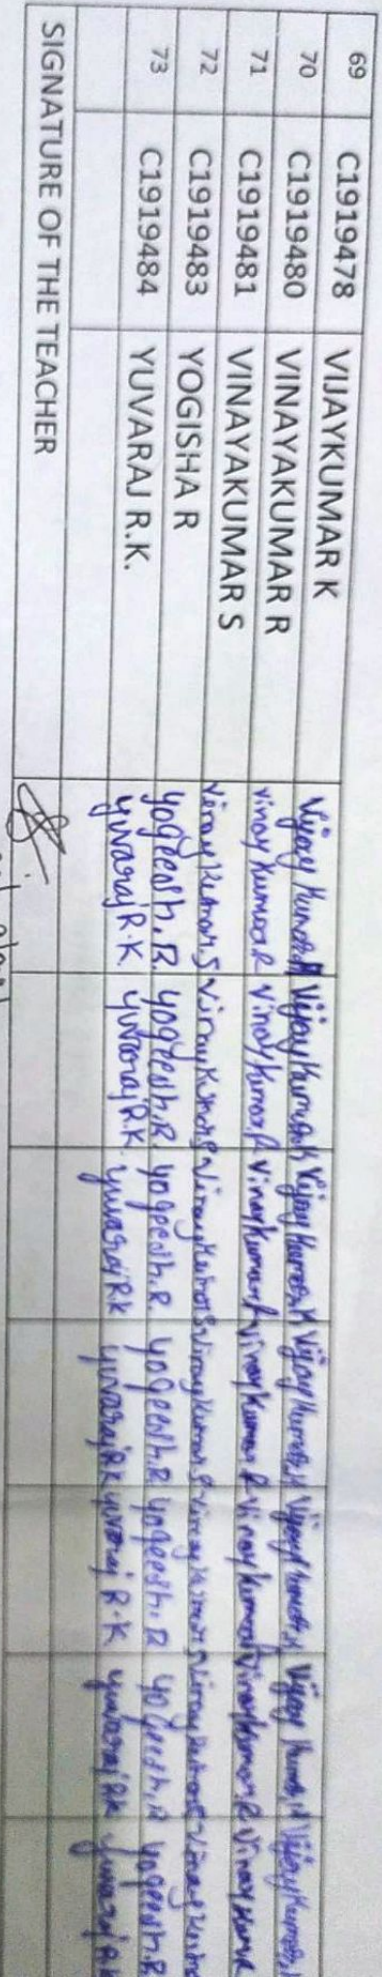 69 C1919478 VIJAYKUMAR K Vijay Kumar.K Vijay Kumar.K Vijay Kumar.K Vijay Kumar.K Vijay Kumar.K Vijay Kumar.K Vijay Kumar.K
70 C1919480 VINAYAKUMAR R vinay Kumar R vinay Kumar.R vinay Kumar.R vinay Kumar R vinay Kumar vinay Kumar.R vinay Kumar
71 C1919481 VINAYAKUMAR S vinay Kumar.S vinay Kumar S vinay Kumar S vinay Kumar S vinay Kumar S vinay Kumar S vinay Kumar
72 C1919483 YOGISHA R yogeesh.R. yogeesh.R. yogeesh.R. yogeesh.R yogeesh.R yogeesh.R yogeesh.R
73 C1919484 YUVARAJ R.K. yuvaraj R.K. yuvaraj R.K. yuvaraj RK yuvaraj RK yuvaraj R.K yuvaraj RK yuvaraj RK
SIGNATURE OF THE TEACHER